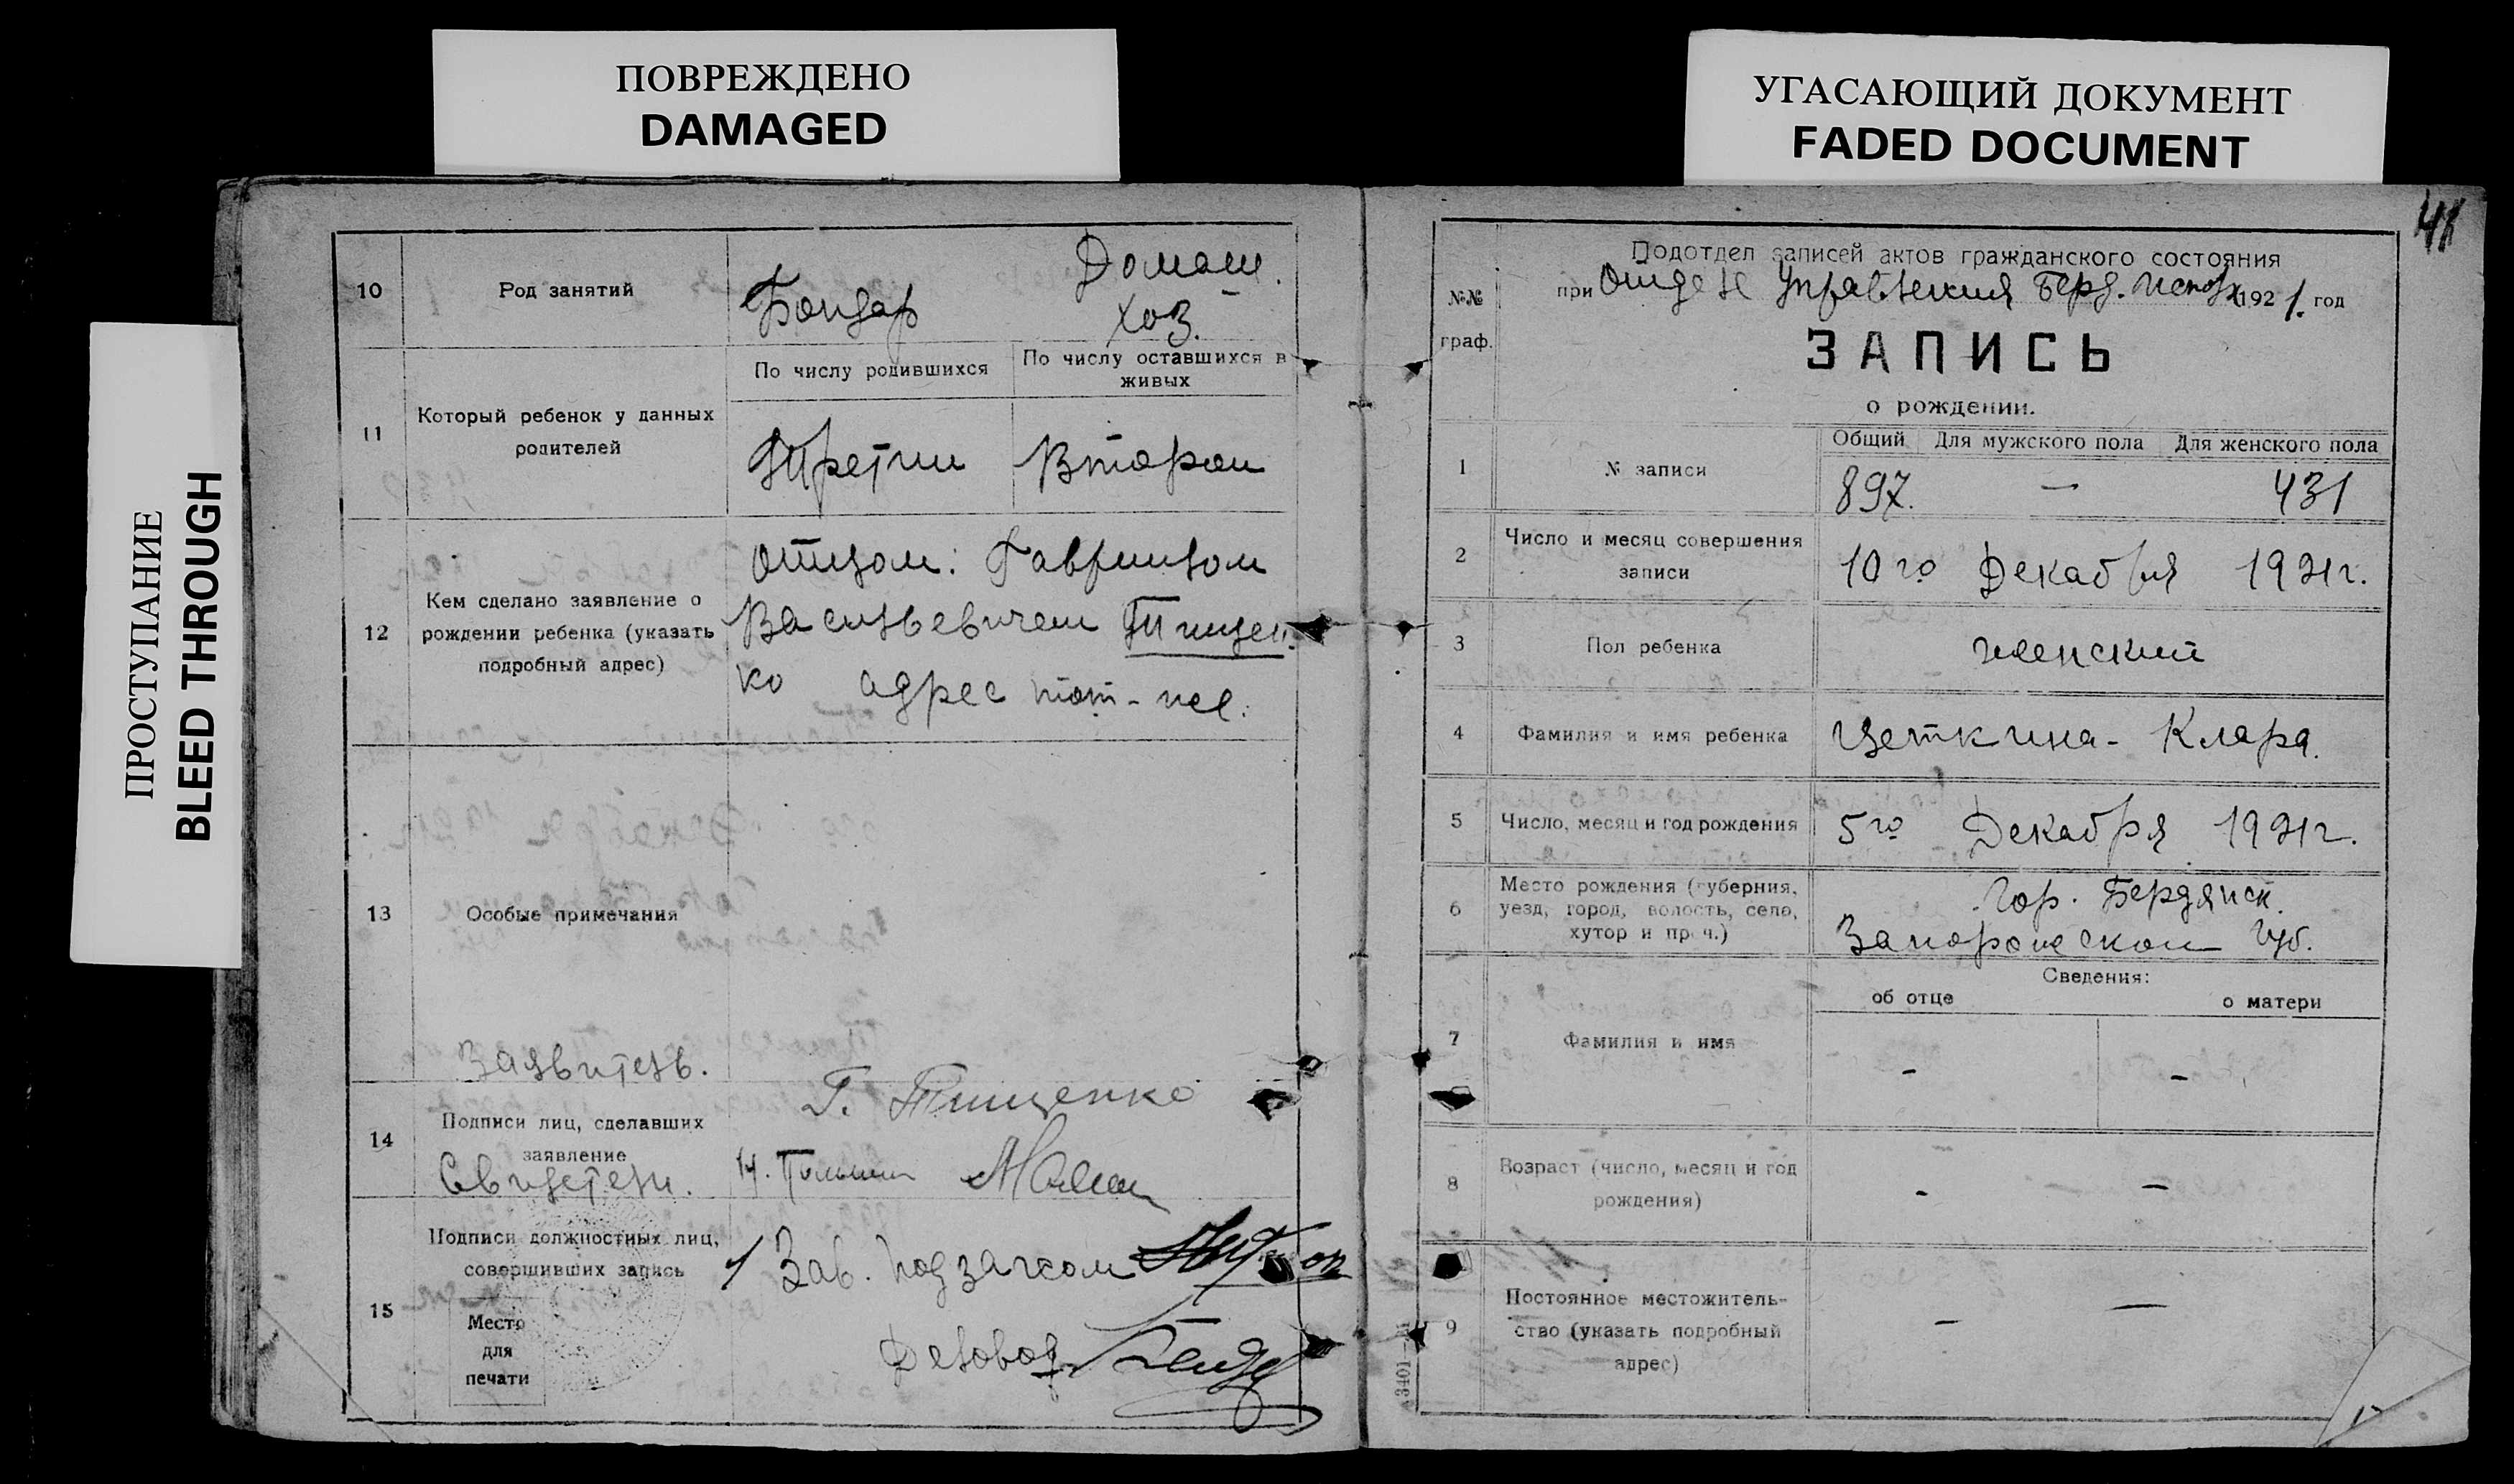 ПОВРЕЖДЕНО
DAMAGED
УГАСАЮЩИЙ ДОКУМЕНТ
FADED DOCUMENT
ПРОСТУПАНИЕ
BLEED THROUGH
10
Род занятий
Бондар
Домаш.
хоз.
11
Который ребенок у данных
родителей
По числу родившихся
По числу оставшихся в
живых
Третий
Второй
12
Кем сделано заявление о
рождении ребенка (указать
подробный адрес)
Отцом: Гавриилом
Васильевичем Тищен
ко адрес тот-же.
13
Особые примечания
Заявитель.
14
Подписи лиц, сделавших
заявление
Свидетели.
Г. Тищенко
15
Подписи должностных лиц,
совершивших запись
Место
для
печати
Зав. подзагсом
Деловод
41
№№
граф.
Подотдел записей актов гражданского состояния
при Отделе Управления Берд. 1921. год
ЗАПИСЬ
о рождении.
1
№ записи
Общий Для мужского пола Для женского пола
897. — 431
2
Число и месяц совершения
записи
10го Декабря 1921г.
3
Пол ребенка
женский
4
Фамилия и имя ребенка
Цеткина - Клара.
5
Число, месяц и год рождения
5го Декабря 1921г.
6
Место рождения (губерния,
уезд, город, волость, село,
хутор и проч.)
Гор. Бердянск.
Запорожской Губ.
Сведения:
об отце
о матери
7
Фамилия и имя
-
-
8
Возраст (число, месяц и год
рождения)
-
-
9
Постоянное местожитель-
ство (указать подробный
адрес)
-
—
3401